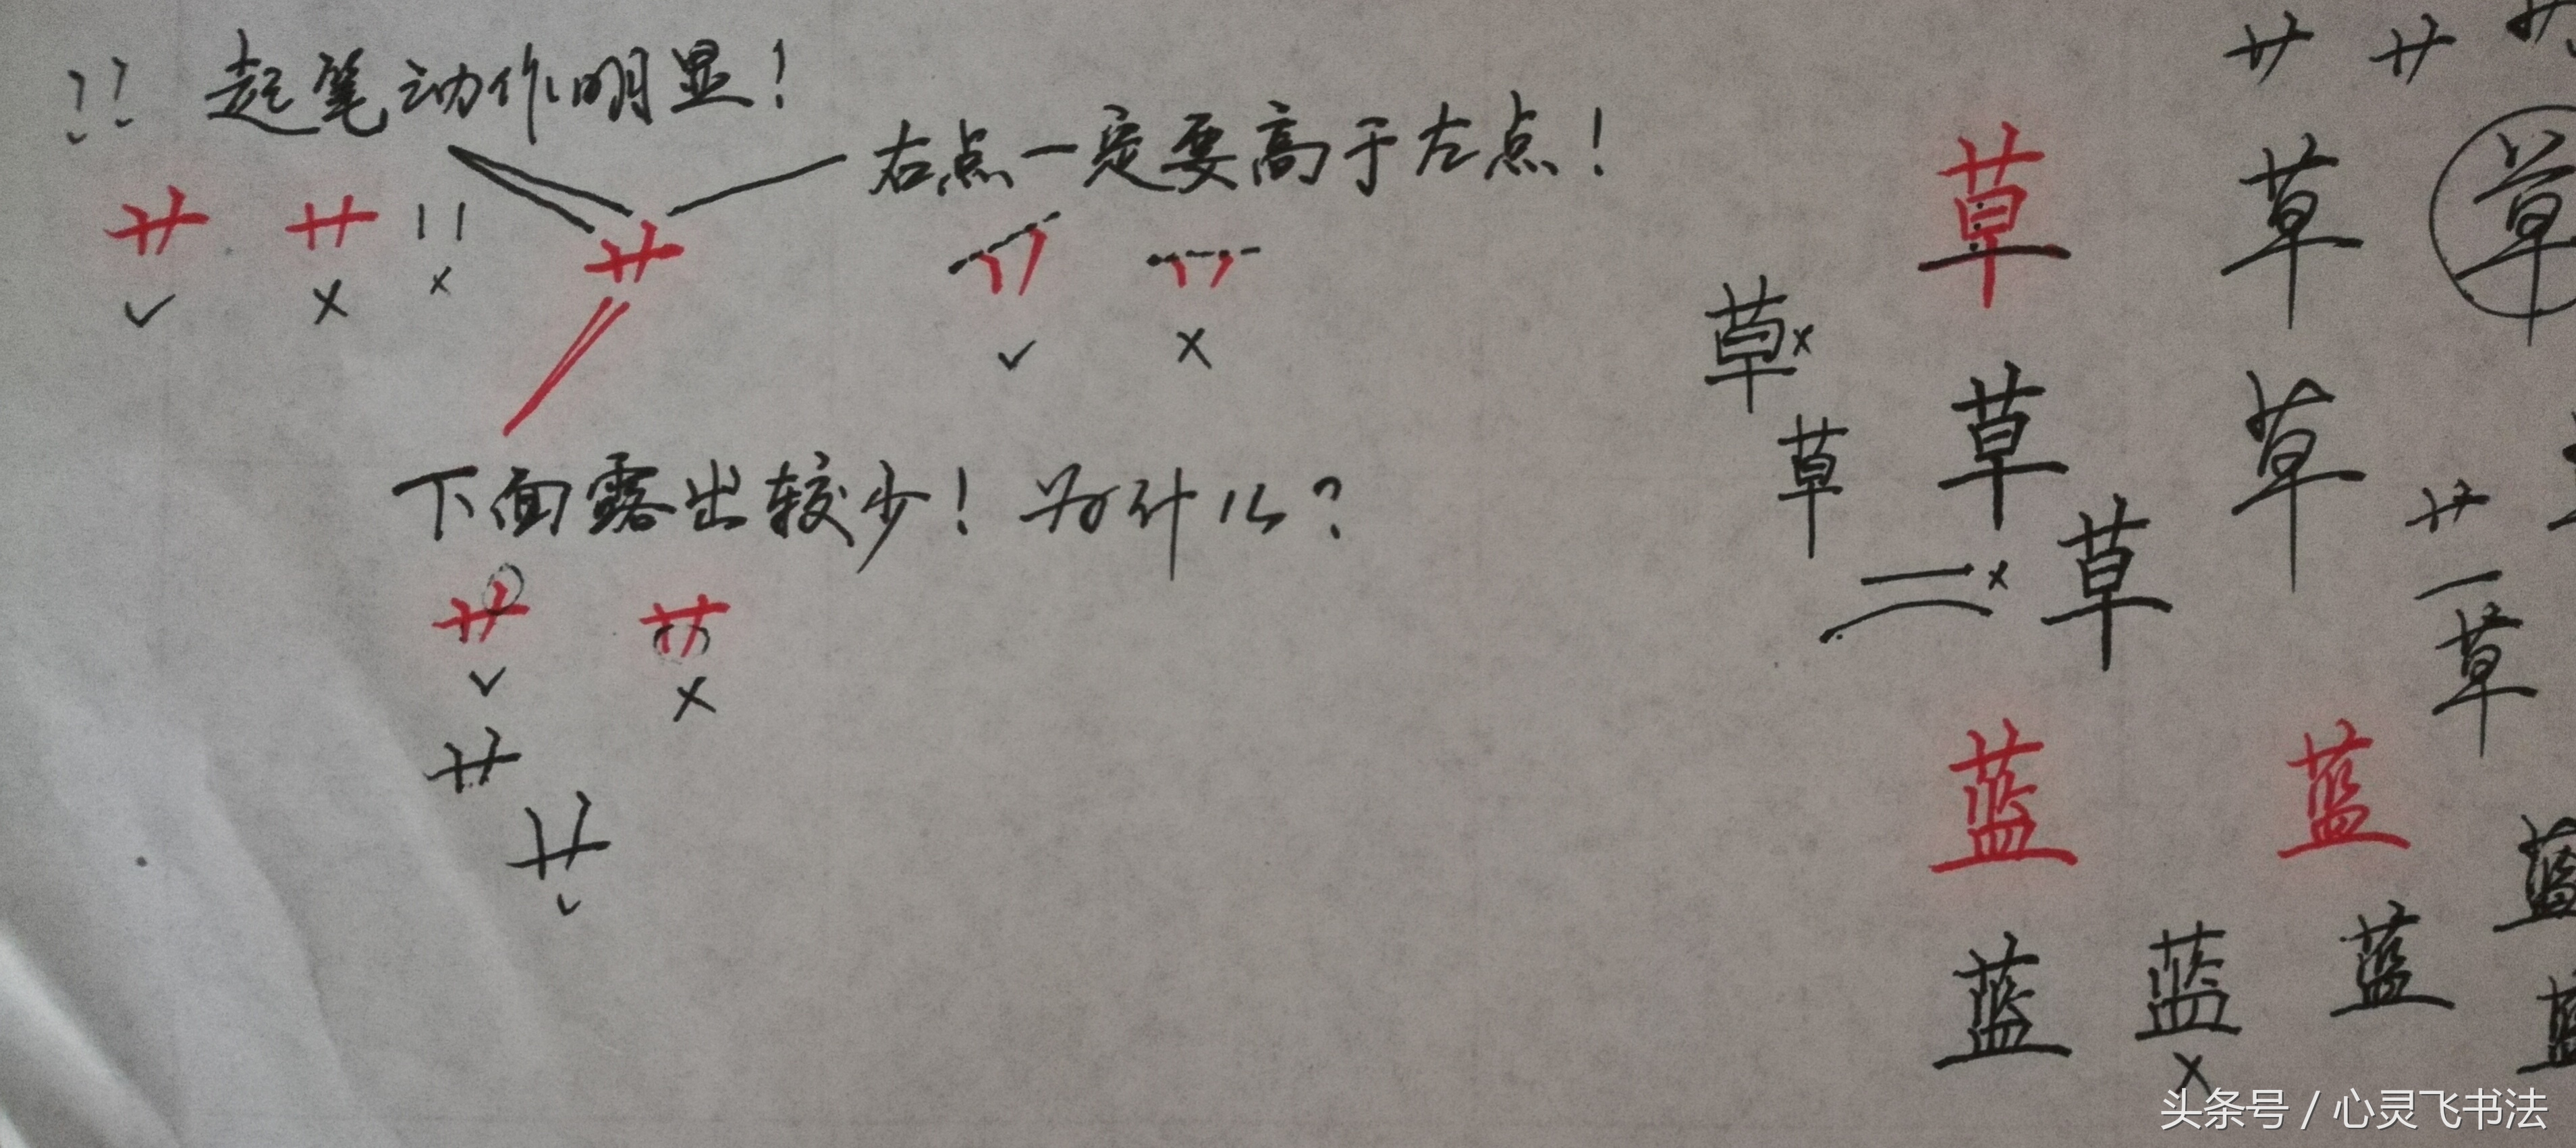 起笔动作明显!
右点一定要高于左点!
艹 艹
艹
下面露出较少! 为什么?
艹 艹
艹
艹
艹 艹
草 草 草
草
草 草 草
草
艹
草
蓝 蓝
蓝
蓝 蓝 蓝
头条号 / 心灵飞书法